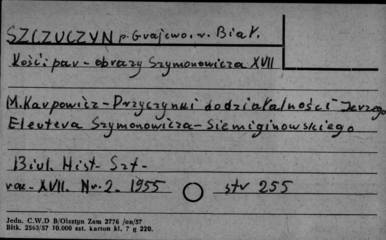 SZCZUCZYN p. Grajewo. w. Biał.
Kość. par - obrazy Szymonowicza XVII
M. Karpowicz - Przyczynki do działalności Jerzego
Eleutera Szymonowicza - Siemiginowskiego
Biul. Hist - Szt -
rok - XVII. Nr. 2. 1955 str 255
Jedn. C.W.D B/Olsztyn Zam 2776 /on/57
Bltk. 2563/57 10.000 szt. karton kl. 7 g 220.